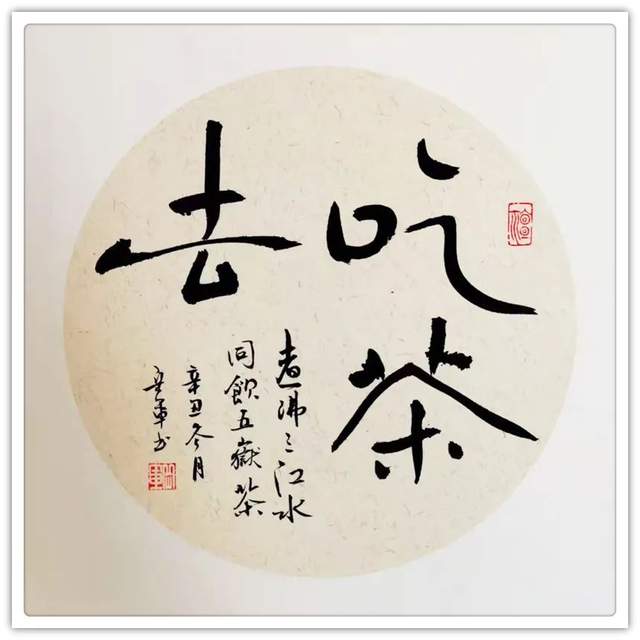 吃茶
去
煮沸三江水
同飲五嶽茶
辛丑冬月
軍书